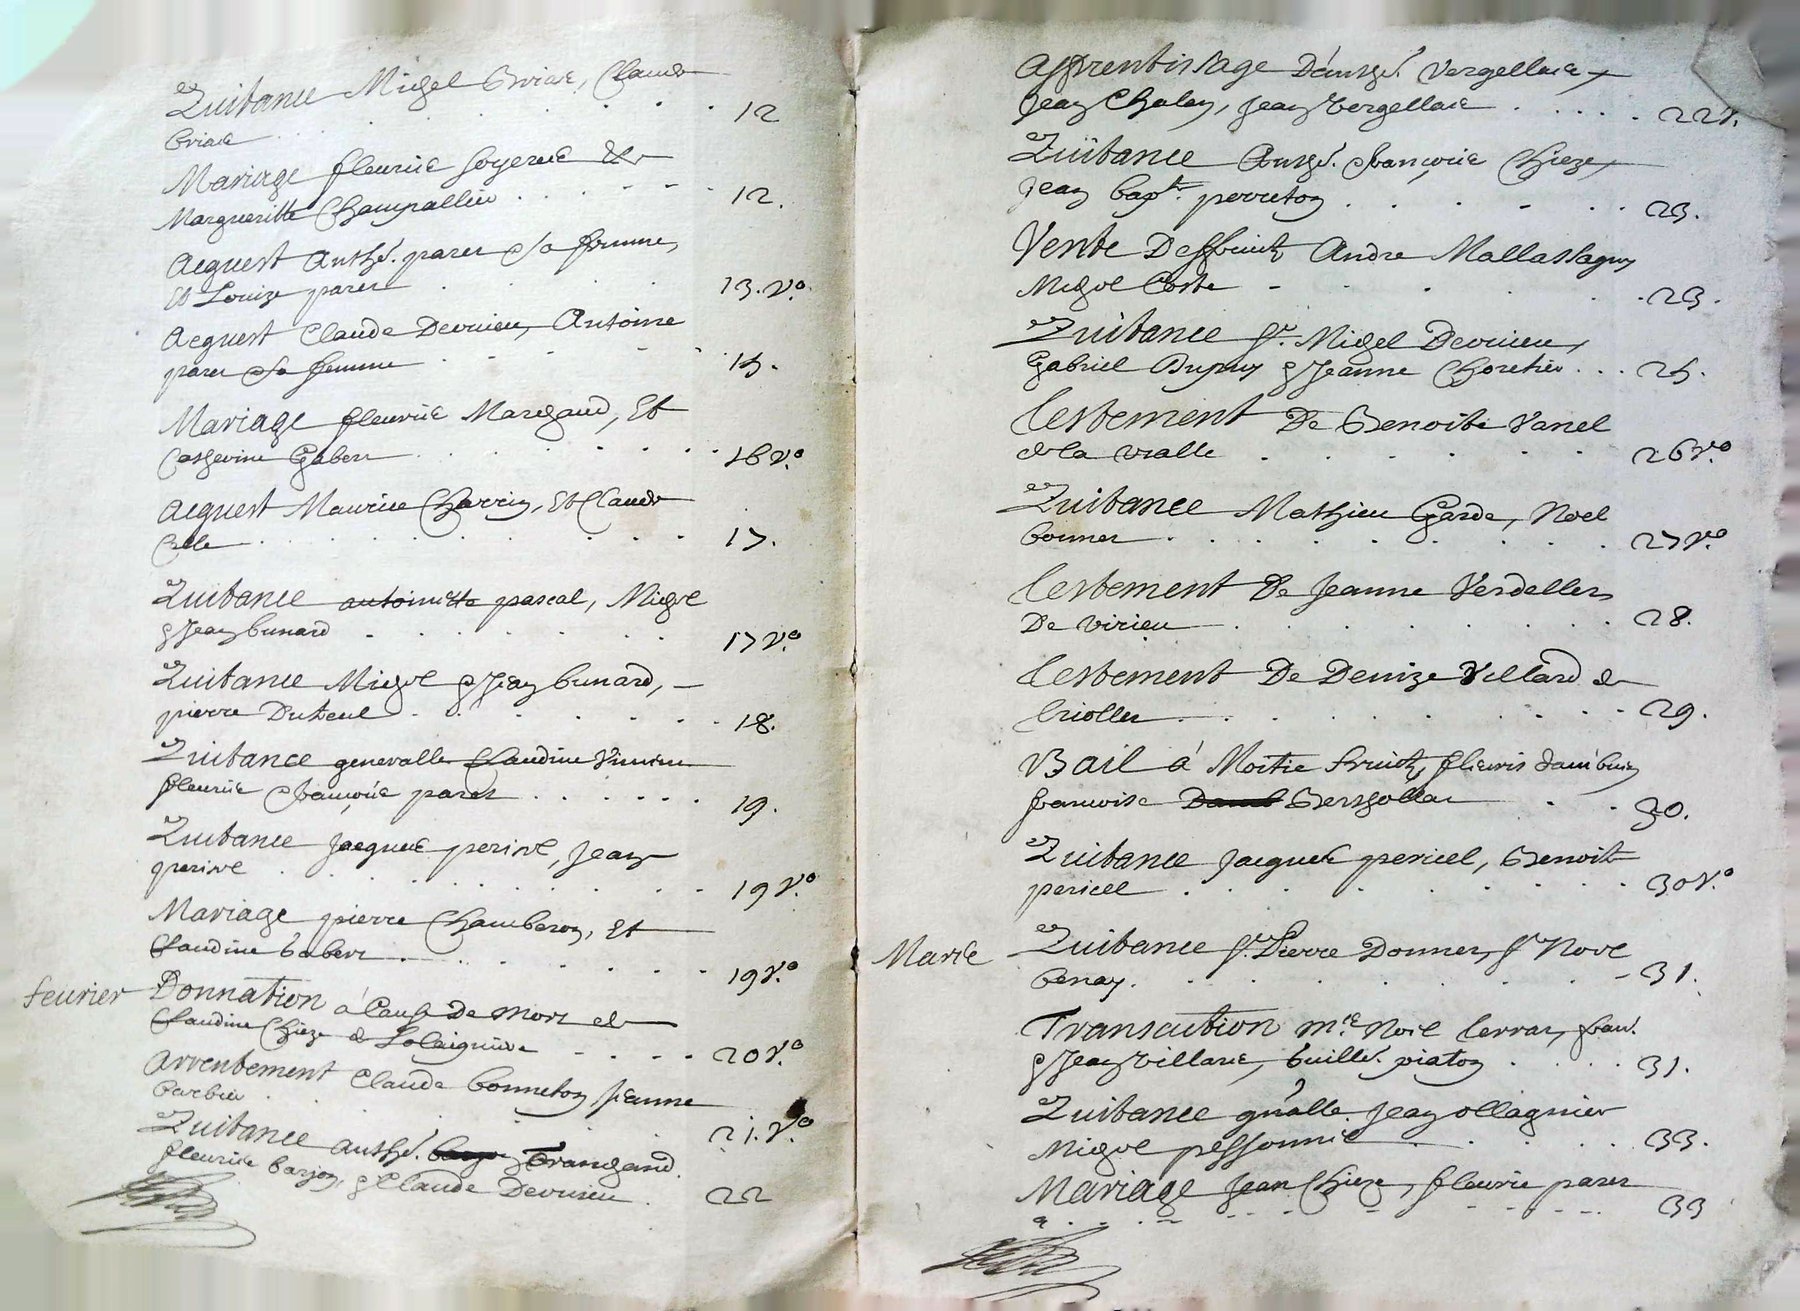 Quitance Migel Briat, Claude
Briat 12
Mariage fleurie et
Margueritte Champallier 12.
Acquest Anthe. paret & sa femme,
Et Louize paret 13. v.o
Acquest Claude Devrieu, Antoine
paret & sa femme 15.
Mariage fleurie Margaud, Et
Catherine Gabert 16 v.o
Acquest Maurice Charrin, Et Claude
17.
Quitance antoinette pascal, Migel
& Jean bunard 17 v.o
Quitance Migel & Jean bunard,
pierre Duteul 18.
Quitance generalle Claudine
fleurie & françoise paret 19.
Quitance Jacques, Jean
19 v.o
Mariage pierre Chamberon, Et
Claudine 19 v.o
feurier Donnation à Cause De mort de
Claudine Chieze de 20 v.o
Arrentement Claude bonneton Jeanne
barbier 21. v.o
Quitance anthe.
fleurie barjon, & Claude Devrieu 22
Apprentissage D'anthe. Vergellas
Jean Chalay, Jean Vergellas 22 v.
Quitance Anthe. françoise Chieze,
Jean bapt. perreton 23.
Vente Deffruits Andre Mallassagny
Migel Coste 23.
Quitance Sr. Migel Devrieu,
Gabriel Dupuy & Jeanne Choretier 25.
Testement De Benoite Vanel
de la vialle 26 v.o
Quitance Mathieu Garde, Noel
bonnet 27 v.o
Testement De Jeanne Verdellet
De virieu 28.
Testement De Denize Villard de
29.
Bail à Moitie fruits, fleuris
francoise 30.
Quitance Jacques pericel, Benoit
pericel 30 v.o
Mars Quitance Sr. Pierre Donnet, Sr Noel
benay. 31.
Transaction me. Noel Terras, fran.
& Jean villard, Guille. piaton 31.
Quitance gn'alle Jean ollagnier
Migel pessonnie 33.
Mariage Jean Chieze, fleurie paret
33